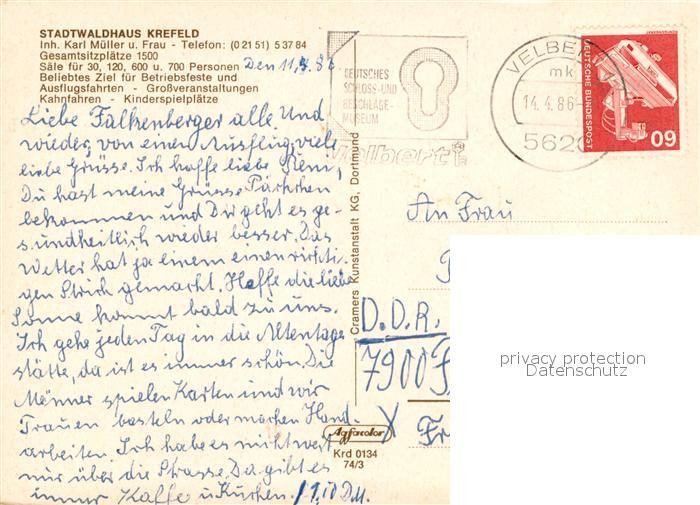 STADTWALDHAUS KREFELD
Inh. Karl Müller u. Frau - Telefon: (0 21 51) 5 37 84
Gesamtsitzplätze 1500
Säle für 30, 120, 600 u. 700 Personen
Beliebtes Ziel für Betriebsfeste und
Ausflugsfahrten - Großveranstaltungen
Kahnfahren - Kinderspielplätze
Den 11.4.86
Liebe Falkenberger alle. Und
wieder von einen Ausflug, viele
liebe Grüsse. Ich hoffe liebe Reni,
Du hast meine Grüsse Pärkchen
bekommen und Dir geht es ge-
sundheitlich wieder besser. Das
Wetter hat ja einem einen richti-
gen Strich gemacht. Hoffe die liebe
Sonne kommt bald zu uns.
Ich gehe jeden Tag in die Altentage
stätte, da ist es immer schön. Die
Männer spielen Karten und wir
Frauen basteln oder machen Hand-
arbeiten. Ich habe es nicht weit
nur über die Strasse. Da gibt es
immer Kaffe u. Kuchen. 1,10 DM.
Cramers Kunstanstalt KG, Dortmund
Agfacolor
Krd 0134
74/3
DEUTSCHES
SCHLOSS- UND
BESCHLÄGE-
MUSEUM
Velbert
VELBERT
mk
14.4.86
5620
DEUTSCHE BUNDESPOST
60
An Frau
D.D.R.
7900
X Fr
privacy protection
Datenschutz